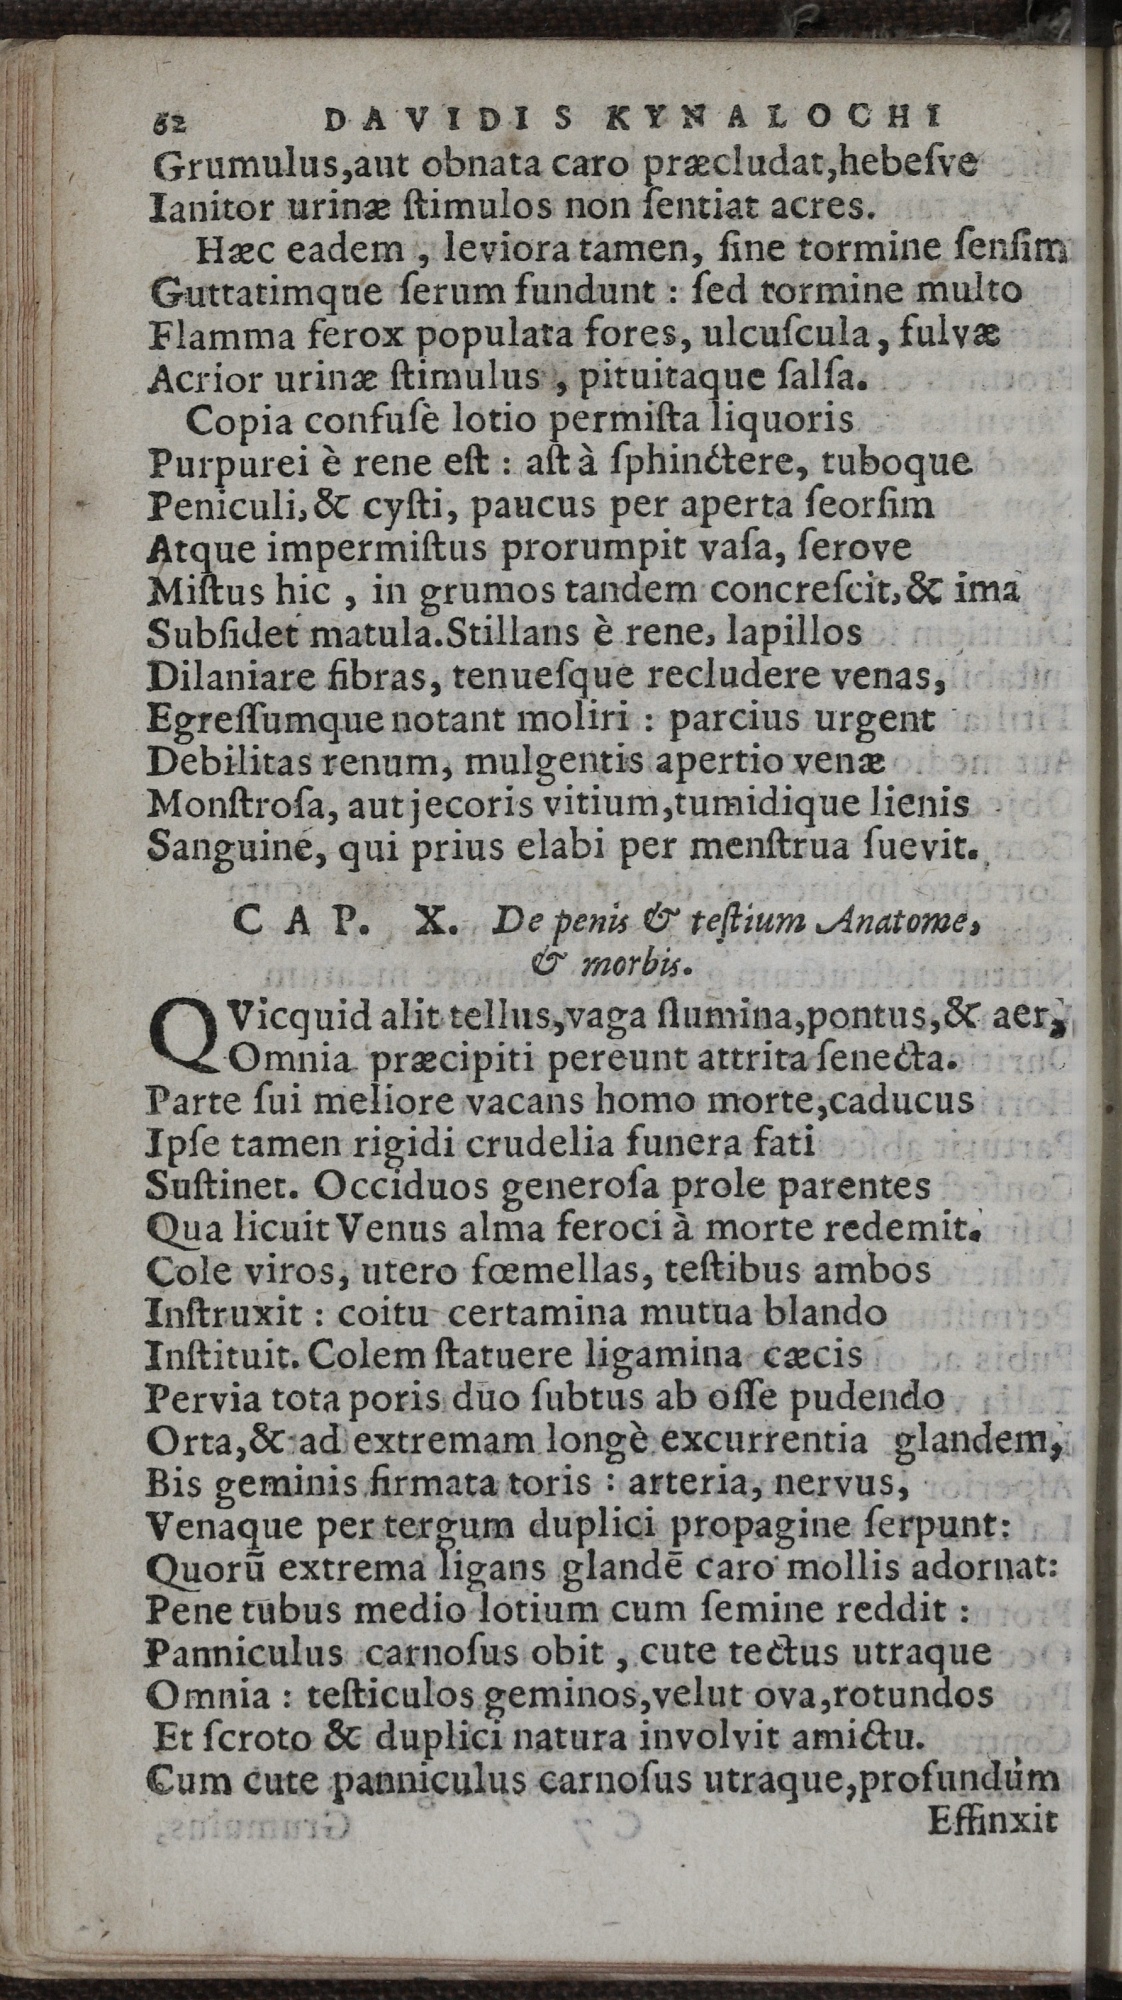 62 DAVIDIS KYNALOCHI
Grumulus,aut obnata caro præcludat,hebeſve
Ianitor urinæ ſtimulos non ſentiat acres.
Hæc eadem , leviora tamen, ſine tormine ſenſim
Guttatimque ſerum fundunt : ſed tormine multo
Flamma ferox populata fores, ulcuſcula, fulvæ
Acrior urinæ ſtimulus , pituitaque ſalſa.
Copia confuſè lotio permiſta liquoris
Purpurei è rene eſt : aſt à ſphinctere, tuboque
Peniculi,& cyſti, paucus per aperta ſeorſim
Atque impermiſtus prorumpit vaſa, ſerove
Miſtus hic , in grumos tandem concreſcit,& ima
Subſidet matula.Stillans è rene, lapillos
Dilaniare fibras, tenueſque recludere venas,
Egreſſumque notant moliri : parcius urgent
Debilitas renum, mulgentis apertio venæ
Monſtroſa, aut jecoris vitium,tumidique lienis
Sanguine, qui prius elabi per menſtrua ſuevit.
CAP. X. De penis & teſtium Anatome,
& morbis.
QVicquid alit tellus,vaga flumina,pontus,& aer,
Omnia præcipiti pereunt attrita ſenecta.
Parte ſui meliore vacans homo morte,caducus
Ipſe tamen rigidi crudelia funera fati
Suſtinet. Occiduos generoſa prole parentes
Qua licuit Venus alma feroci à morte redemit.
Cole viros, utero fœmellas, teſtibus ambos
Inſtruxit : coitu certamina mutua blando
Inſtituit. Colem ſtatuere ligamina cæcis
Pervia tota poris duo ſubtus ab oſſe pudendo
Orta,& ad extremam longè excurrentia glandem,
Bis geminis firmata toris : arteria, nervus,
Venaque per tergum duplici propagine ſerpunt:
Quorū extrema ligans glandē caro mollis adornat:
Pene tubus medio lotium cum ſemine reddit :
Panniculus carnoſus obit , cute tectus utraque
Omnia : teſticulos geminos,velut ova,rotundos
Et ſcroto & duplici natura involvit amictu.
Cum cute panniculus carnoſus utraque,profundùm
Effinxit